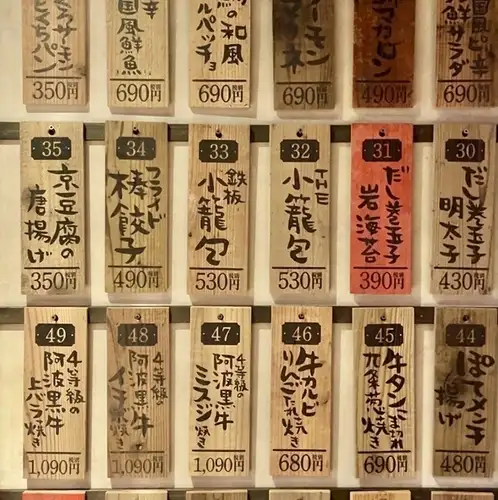 鮮サラダ
690円
マカロン
490円
ーモン
マネ
690円
の和風
ルパッチョ
690円
辛
国風鮮魚
690円
パン
350円
30
だし巻玉子
明太子
430円
31
だし巻玉子
岩海苔
390円
32
THE
小籠包
530円
33
鉄板
小籠包
530円
34
フライド
棒餃子
490円
35
京豆腐の
唐揚げ
350円
44
ぽてメンチ
揚げ
480円
45
牛タンぶつ切れ
九条葱焼き
690円
46
牛カルビ
りんごたれ焼き
680円
47
4等級の
阿波黒牛
ミスジ焼き
1,090円
48
4等級の
阿波黒牛
イチボ焼き
1,090円
49
4等級の
阿波黒牛
上バラ焼き
1,090円